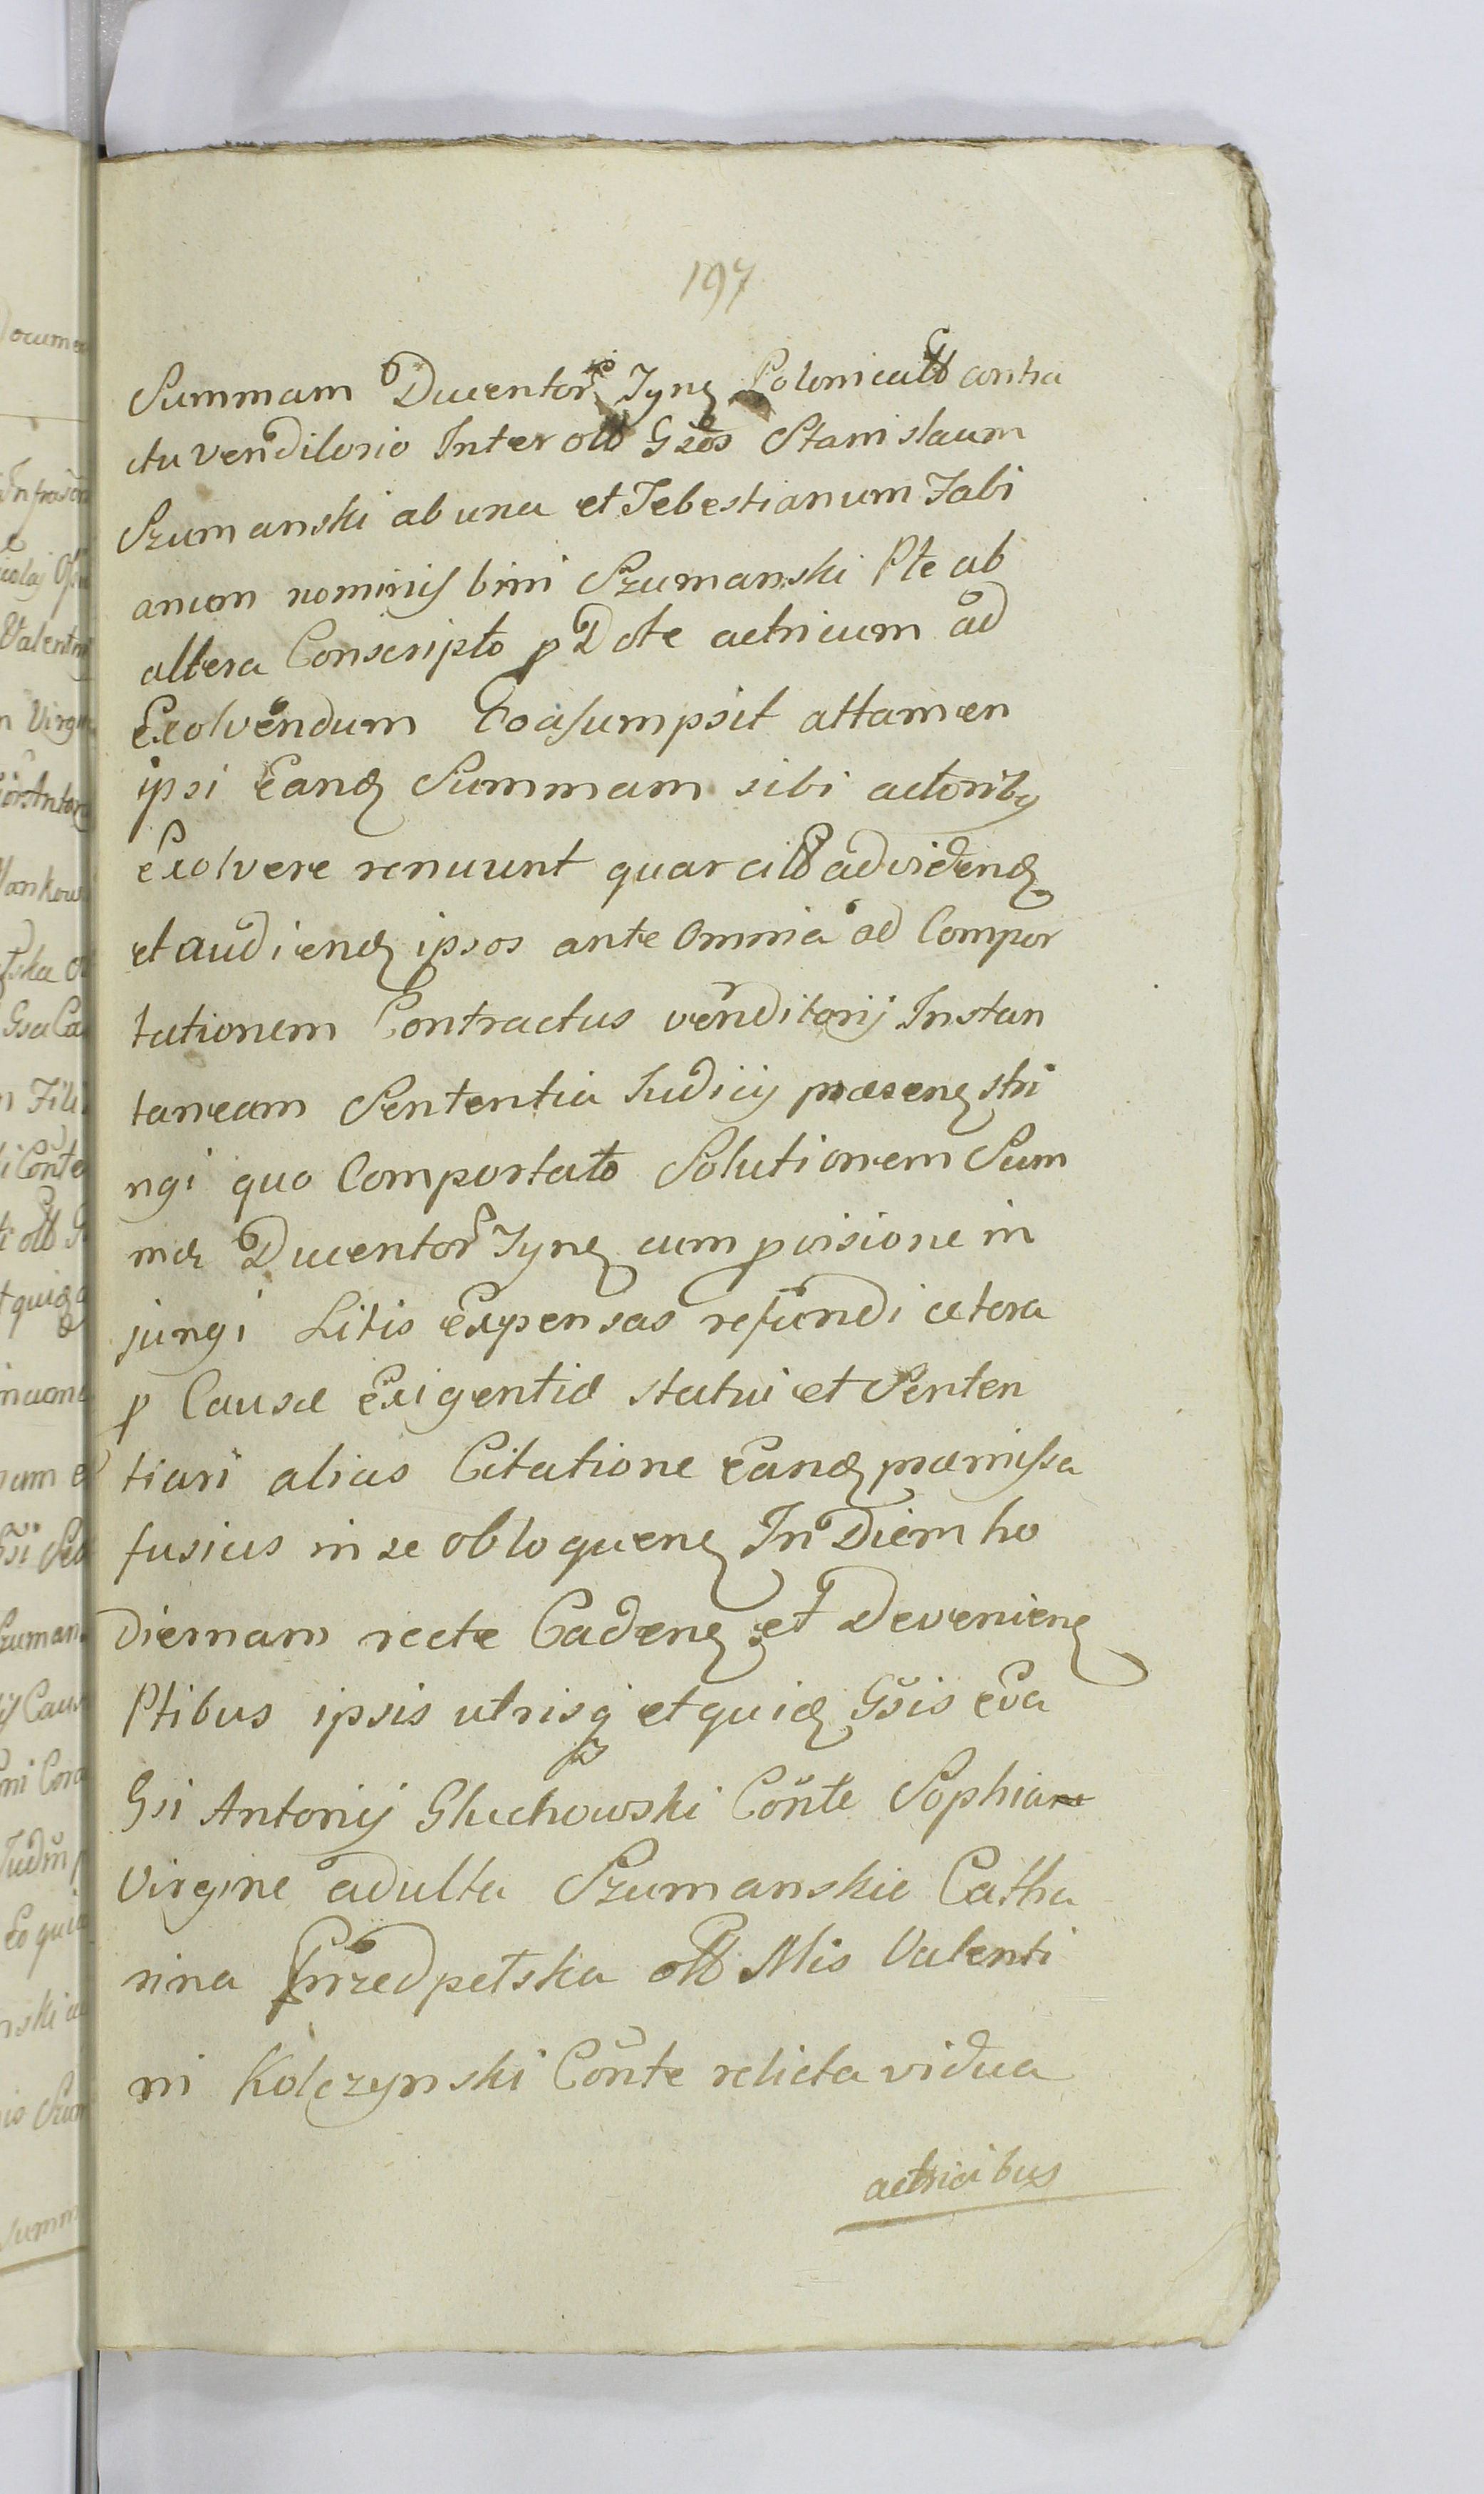 197
Summam Ducentor Tynf Polonicalib contra
ctu venditorio Inter olib Gsos Stanislaum
Szumanski ab una et Sebestianum Fabi
anum nominis bini Szumanski Pte ab
altera Conscripto p Dote actricum ad
Exolvendum Coassumpsit attamen
ipsi Eand Summam sibi actoribq
exolvere renuunt quar citt ad vidend
et audiend ipsos ante Omnia ad Compor
tationem Contractus venditorij Instan
taneam Sententia Iudicij praesen stri
ngi quo Comportato Solutionem Sum
mæ Ducentor Tynf cum pvisione in
jungi Litis Expensas refundi cetera
p Causæ Exigentia statui et Senten
tiari alias Citatione Eand præmissa
fusius in se obloquen In Diem ho
diernam recte Caden et Devenien
Ptibus ipsis utrisq et quid Gsis Eva
Gsi Antonij Gluchowski Conte Sophia
virgine adulta Szumanskie Catha
rina Przedpełska olb Mis Valenti
ni Kolczynski Conte relicta vidua
actricibus
Documen
Valentin
n Virgin
Summ